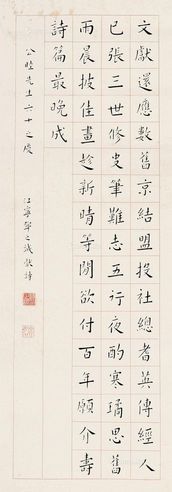 文獻還應數舊京結盟投社總耆英傳經人
已張三世修史筆難志五行夜酌寒璚思舊
雨晨披佳畫趁新晴等閒欲付百年願介壽
詩篇最晚成
公睦先生六十之慶
江寧鄧之誠獻詩